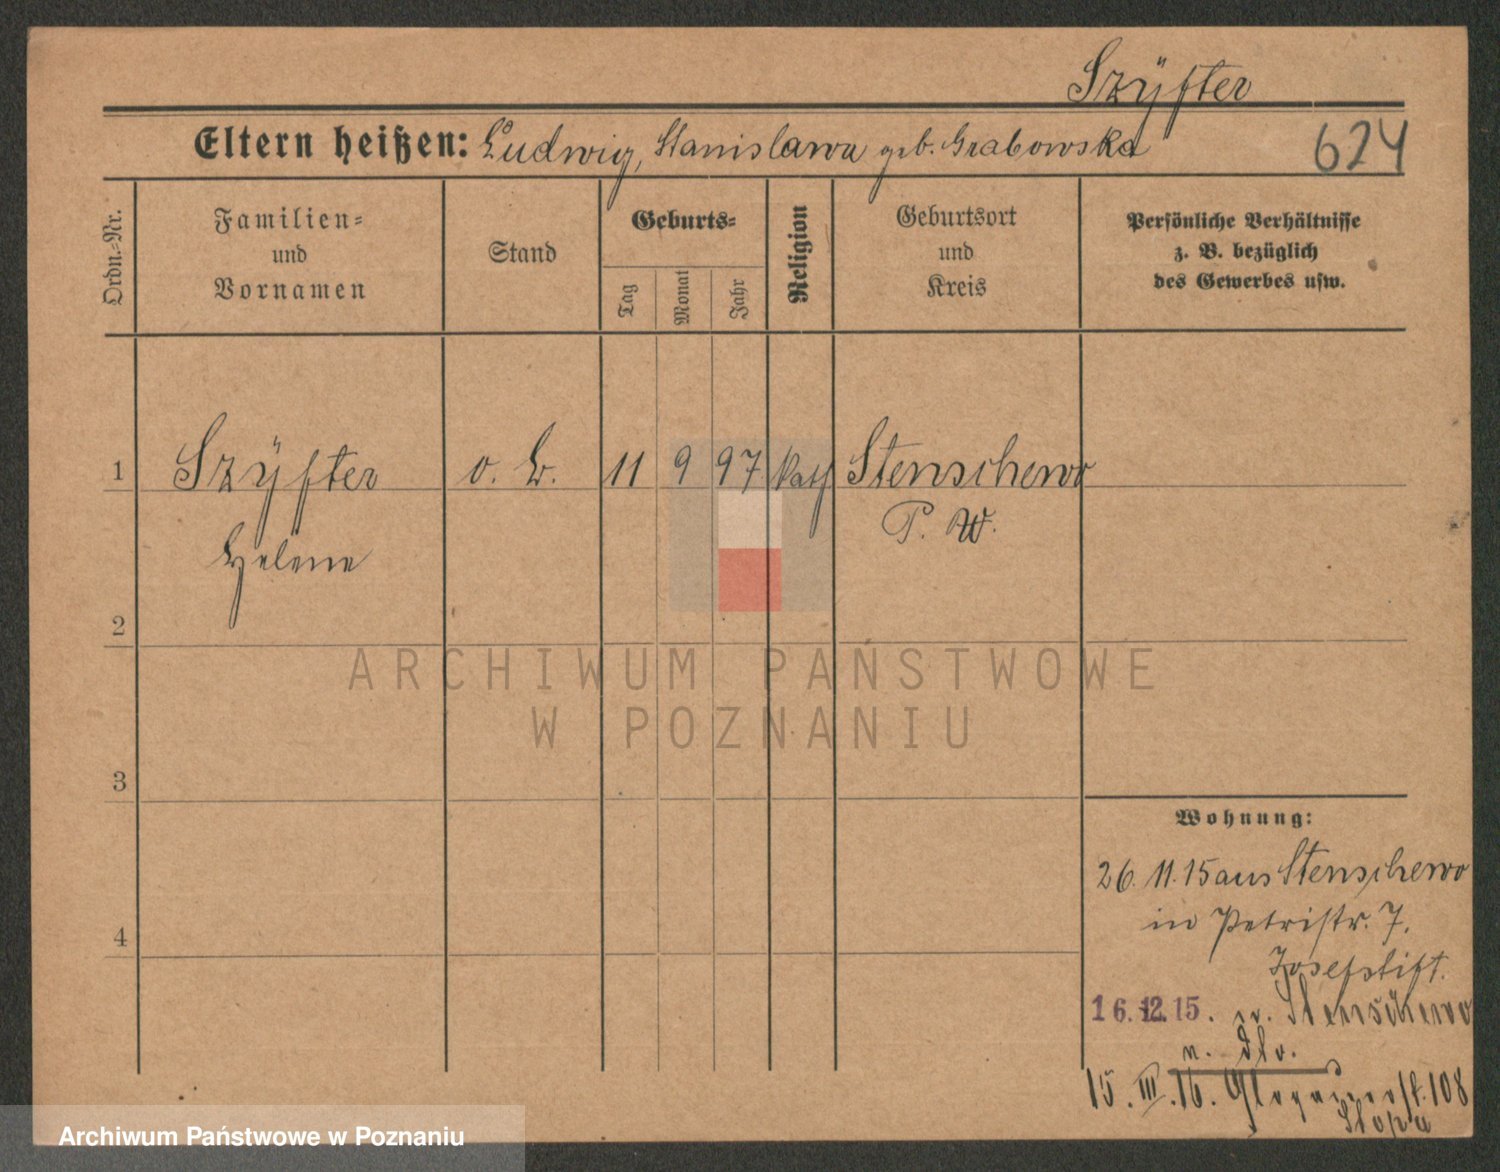 Szÿfter
Eltern heißen: Ludwig, Stanislawa geb. Grabowska
624
Ordn.-Nr.
Familien-
und
Vornamen
Stand
Geburts-
Tag
Monat
Jahr
Religion
Geburtsort
und
Kreis
Persönliche Verhältnisse
z. B. bezüglich
des Gewerbes usw.
1 Szÿfter o. B. 11 9 97 kath Stenschewo
Helene P. W.
2
ARCHIWUM PAŃSTWOWE
W POZNANIU
3
Wohnung:
26. 11. 15 aus Stenschewo
in Petristr. 7.
4
Josefstift.
16.12.15. n. Stenschewo
15. III. 16. 108
Archiwum Państwowe w Poznaniu